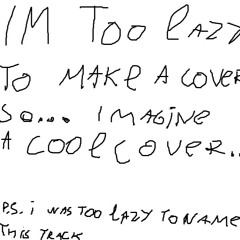 IM TOO LAZY
TO MAKE A COVER
SO... IMAGINE
A COOL COVER..
P.S. i WAS TOO LAZY TO NAME
THIS TRACK